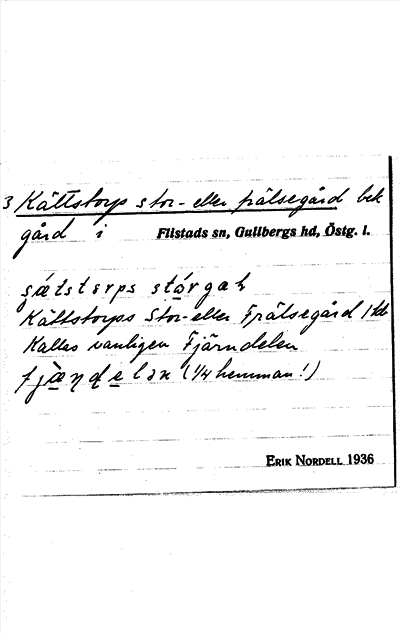 3 Kättstorps stor- eller frälsegård bek
gård i Flistads sn, Gullbergs hd, Östg. l.
Kättstorps Stor- eller Frälsegård Jtb
Kallas vanligen Fjärndelen
(1/4 hemman!)
ERIK NORDELL 1936